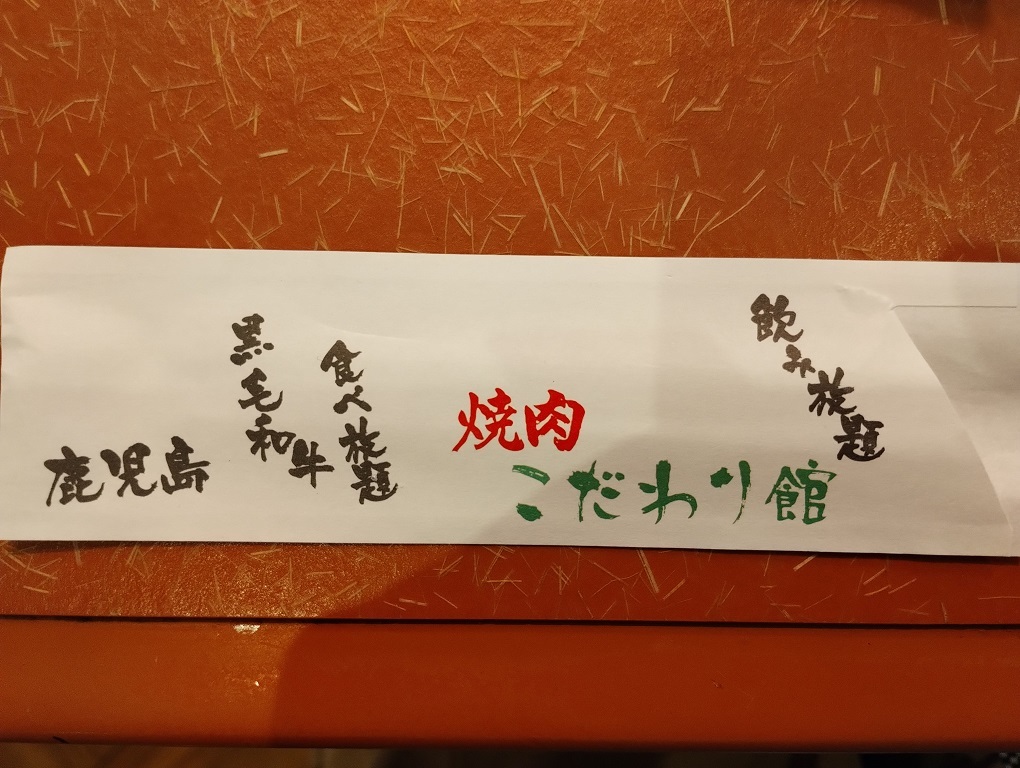 鹿児島
黒毛和牛
食べ放題
焼肉
こだわり館
飲み放題